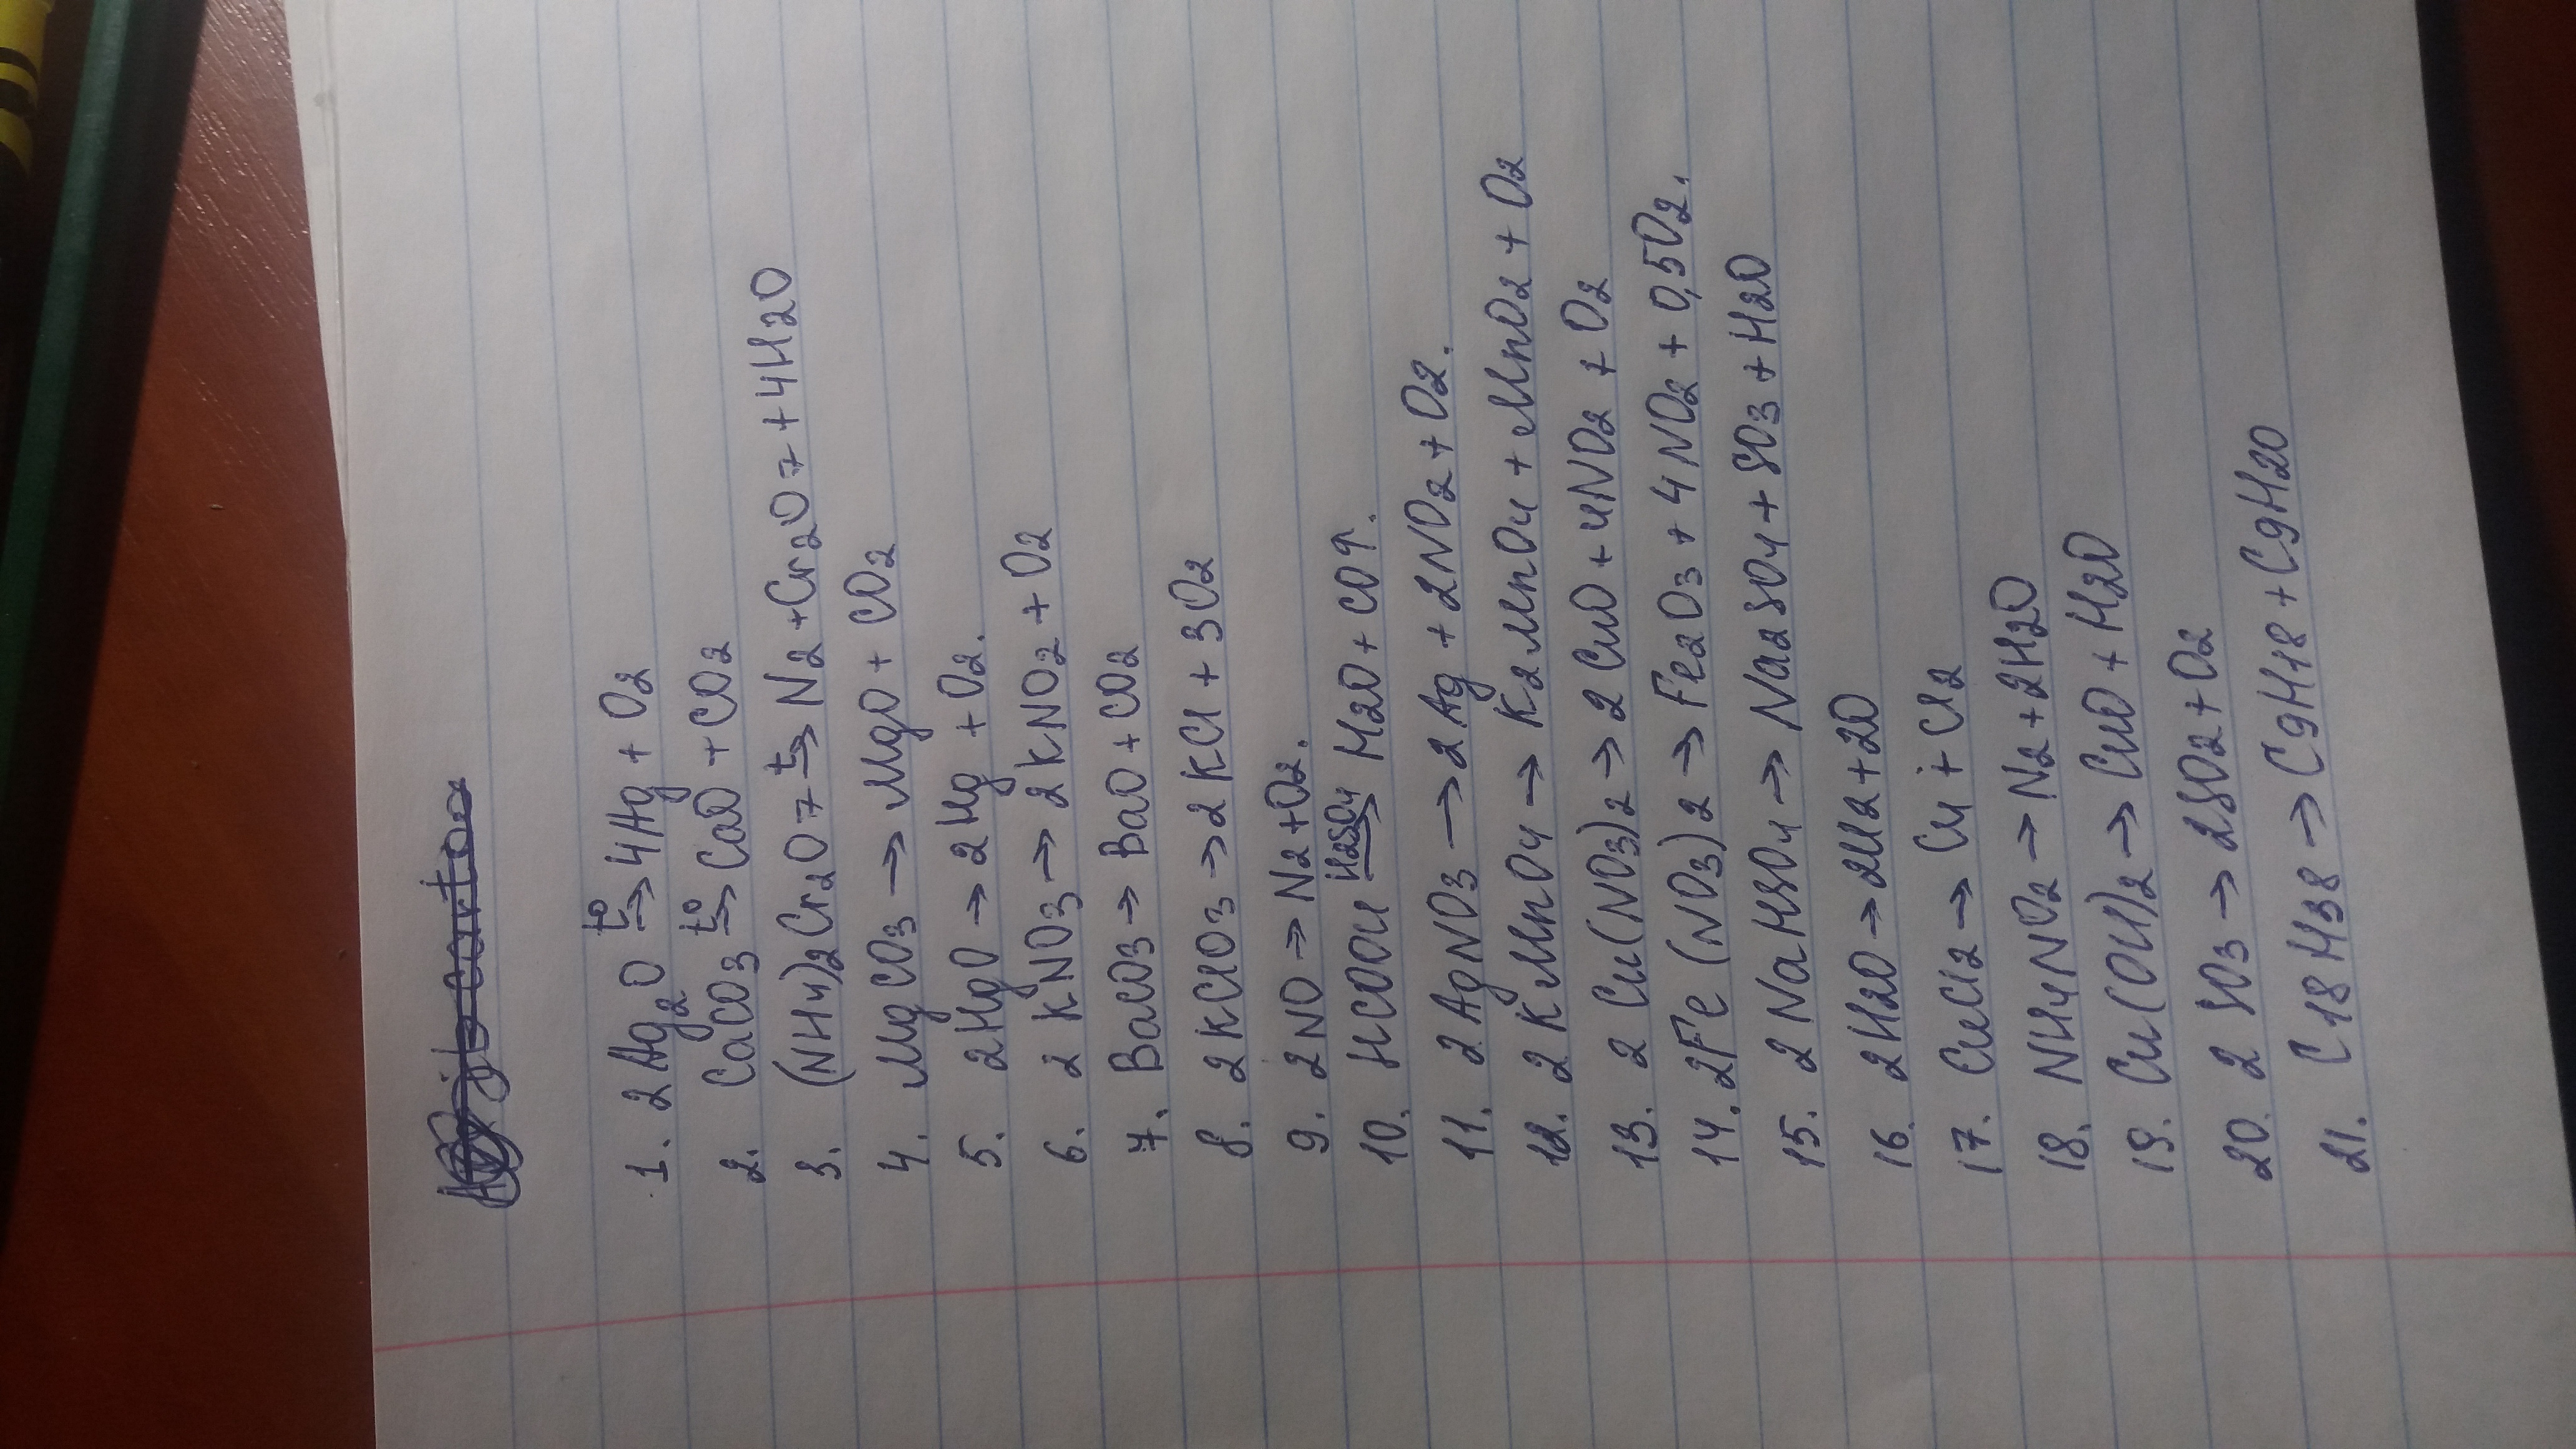 1. 2Ag2O t°→ 4Ag + O2
2. CaCO3 t°→ CaO + CO2
3. (NH4)2Cr2O7 t→ N2 + Cr2O7 + 4H2O
4. MgCO3 → MgO + CO2
5. 2HgO → 2Hg + O2.
6. 2KNO3 → 2KNO2 + O2
7. BaCO3 → BaO + CO2
8. 2KClO3 → 2KCl + 3O2
9. 2NO → N2 + O2.
10. HCOOH H2SO4→ H2O + CO↑.
11. 2AgNO3 → 2Ag + 2NO2 + O2.
12. 2KMnO4 → K2MnO4 + MnO2 + O2
13. 2Cu(NO3)2 → 2CuO + 4NO2 + O2
14. 2Fe(NO3)2 → Fe2O3 + 4NO2 + 0,5O2.
15. 2NaHSO4 → Na2SO4 + SO3 + H2O
16. 2H2O → 2H2 + 2O
17. CuCl2 → Cu + Cl2
18. NH4NO2 → N2 + 2H2O
19. Cu(OH)2 → CuO + H2O
20. 2SO3 → 2SO2 + O2
21. C18H38 → C9H18 + C9H20